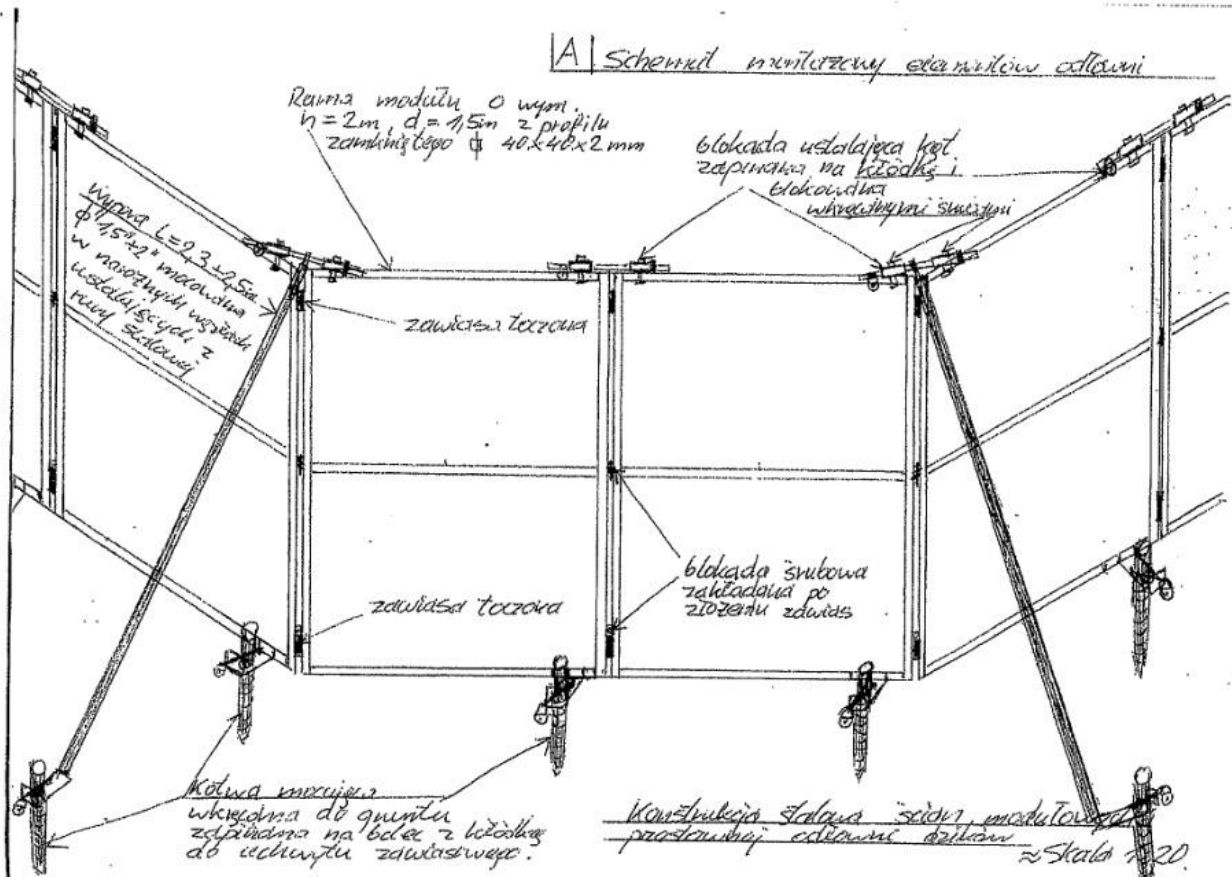 A Schemat montażowy elementów odłowni
Rama modułu o wym.
h = 2m, d = 1,5m z profilu
zamkniętego ф 40x40x2mm
blokada ustalająca kąt
zapinana na kłódkę i
blokowana
wkręcanymi śrubami
L=2,3÷2,5m
ф 1,5"÷2" mocowana
w narożnych
ustalających z
rury stalowej
zawiasa toczona
zawiasa toczona
blokada śrubowa
zakładana po
złożeniu zawias
Kotwa mocująca
wkręcana do gruntu
zapinana na bolec z kłódką
do uchwytu zawiasowego.
Konstrukcja stalowa ścian
odłowni dzików
≈ Skala 1:20